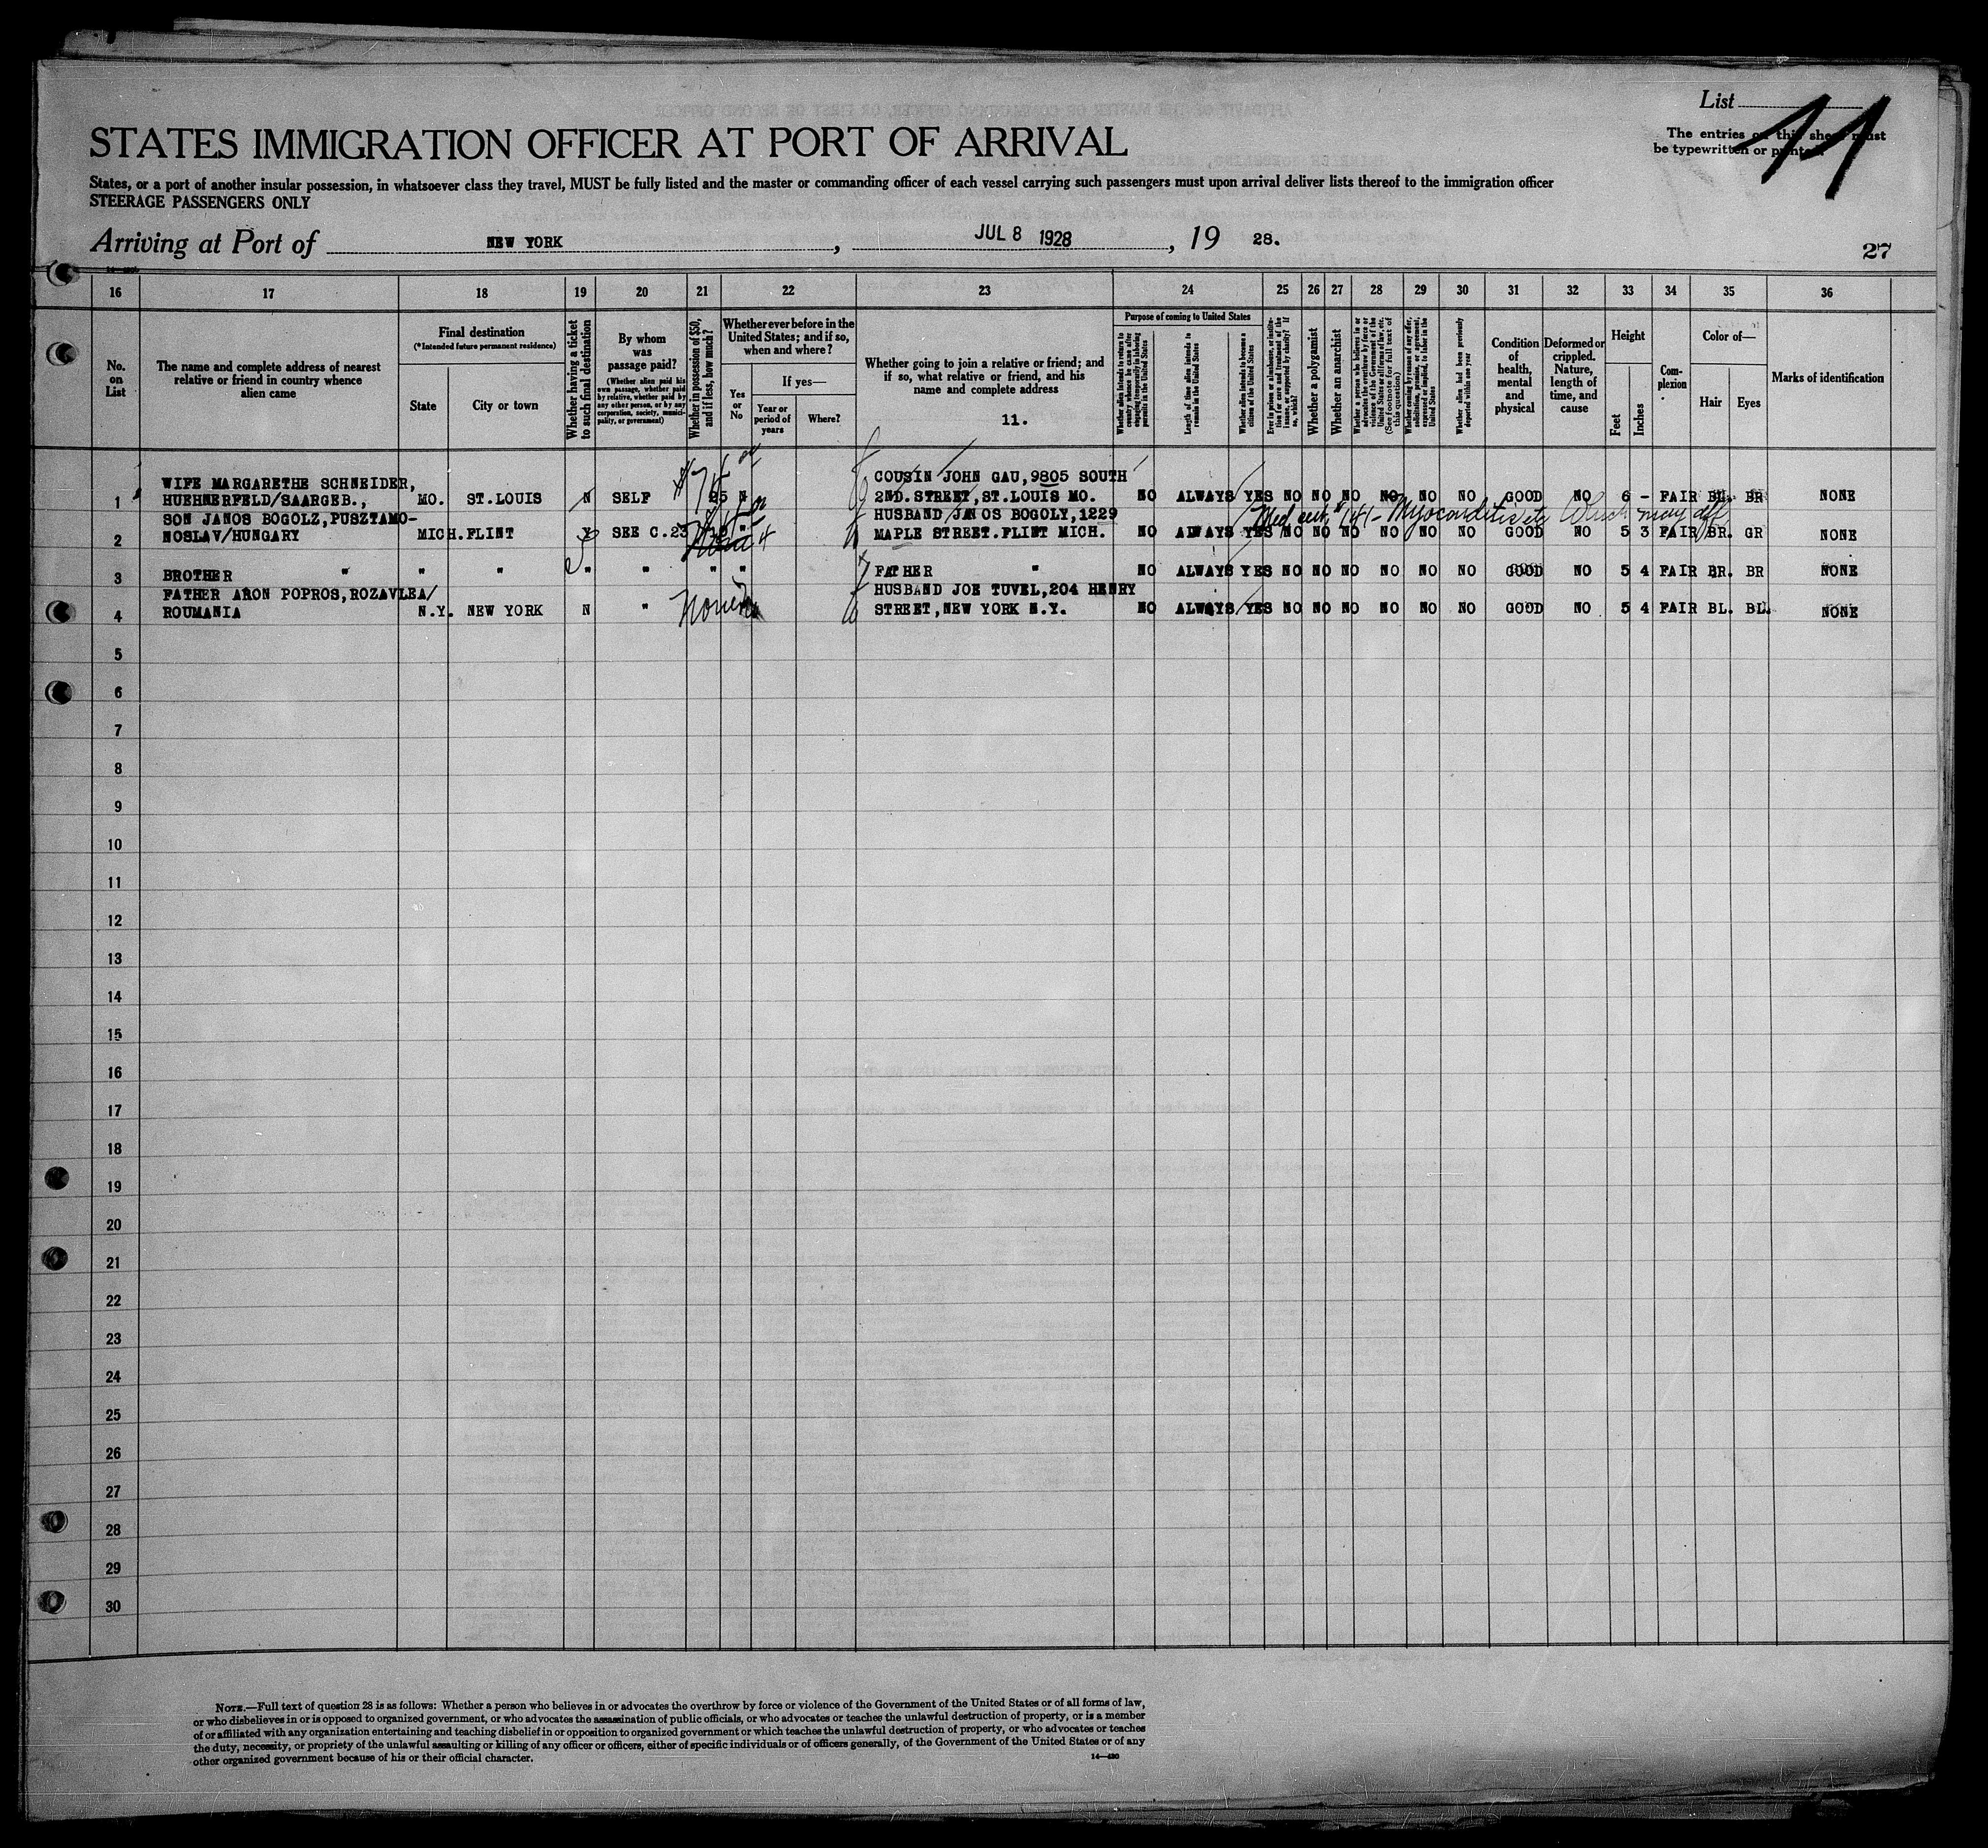 List 11
The entries on this sheet must
be typewritten or printed.
STATES IMMIGRATION OFFICER AT PORT OF ARRIVAL
States, or a port of another insular possession, in whatsoever class they travel, MUST be fully listed and the master or commanding officer of each vessel carrying such passengers must upon arrival deliver lists thereof to the immigration officer
STEERAGE PASSENGERS ONLY
Arriving at Port of NEW YORK, JUL 8 1928, 19 28.
27
16 17 18 19 20 21 22 23 24 25 26 27 28 29 30 31 32 33 34 35 36
No. on List
The name and complete address of nearest relative or friend in country whence alien came
Final destination
(*Intended future permanent residence)
State
City or town
Whether having a ticket to such final destination
By whom was passage paid?
(Whether alien paid his own passage, whether paid by relative, whether paid by any other person, or by any corporation, society, municipality, or government)
Whether in possession of $50, and if less, how much?
Whether ever before in the United States; and if so, when and where?
Yes or No
If yes—
Year or period of years
Where?
Whether going to join a relative or friend; and if so, what relative or friend, and his name and complete address
11.
Purpose of coming to United States
Whether alien intends to return to country whence he came after engaging temporarily in laboring pursuits in the United States
Length of time alien intends to remain in the United States
Whether alien intends to become a citizen of the United States
Ever in prison or almshouse, or institution for care and treatment of the insane, or supported by charity? If so, which?
Whether a polygamist
Whether an anarchist
Whether a person who believes in or advocates the overthrow by force or violence of the Government of the United States or all forms of law, etc. (See footnote for full text of this question)
Whether coming by reason of any offer, solicitation, promise, or agreement, expressed or implied, to labor in the United States
Whether alien had been previously deported within one year
Condition of health, mental and physical
Deformed or crippled. Nature, length of time, and cause
Height
Feet
Inches
Complexion
Color of—
Hair
Eyes
Marks of identification
WIFE MARGARETHE SCHNEIDER, COUSIN JOHN GAU, 9805 SOUTH
1 HUEHNERFELD/SAARGEB., MO. ST.LOUIS N SELF $75 N 2ND.STREET,ST.LOUIS MO. NO ALWAYS YES NO NO NO NO NO NO GOOD NO 6 - FAIR BL. BR NONE
SON JANOS BOGOLZ,PUSZTAMO- HUSBAND JANOS BOGOLY,1229 Med cert
2 NOSLAV/HUNGARY MICH. FLINT Y SEE C.23 " MAPLE STREET.FLINT MICH. NO ALWAYS YES NO NO NO NO NO NO GOOD NO 5 3 FAIR BR. GR NONE
3 BROTHER " " " " " " " FATHER " NO ALWAYS YES NO NO NO NO NO NO GOOD NO 5 4 FAIR BR. BR NONE
FATHER ARON POPROS,ROZAVLEA/ HUSBAND JOE TUVEL,204 HENRY
4 ROUMANIA N.Y. NEW YORK N " None STREET,NEW YORK N.Y. NO ALWAYS YES NO NO NO NO NO NO GOOD NO 5 4 FAIR BL. BL. NONE
5
6
7
8
9
10
11
12
13
14
15
16
17
18
19
20
21
22
23
24
25
26
27
28
29
30
NOTE.—Full text of question 28 is as follows: Whether a person who believes in or advocates the overthrow by force or violence of the Government of the United States or of all forms of law,
or who disbelieves in or is opposed to organized government, or who advocates the assassination of public officials, or who advocates or teaches the unlawful destruction of property, or is a member
of or affiliated with any organization entertaining and teaching disbelief in or opposition to organized government or which teaches the unlawful destruction of property, or who advocates or teaches
the duty, necessity, or propriety of the unlawful assaulting or killing of any officer or officers, either of specific individuals or of officers generally, of the Government of the United States or of any
other organized government because of his or their official character.
14—430